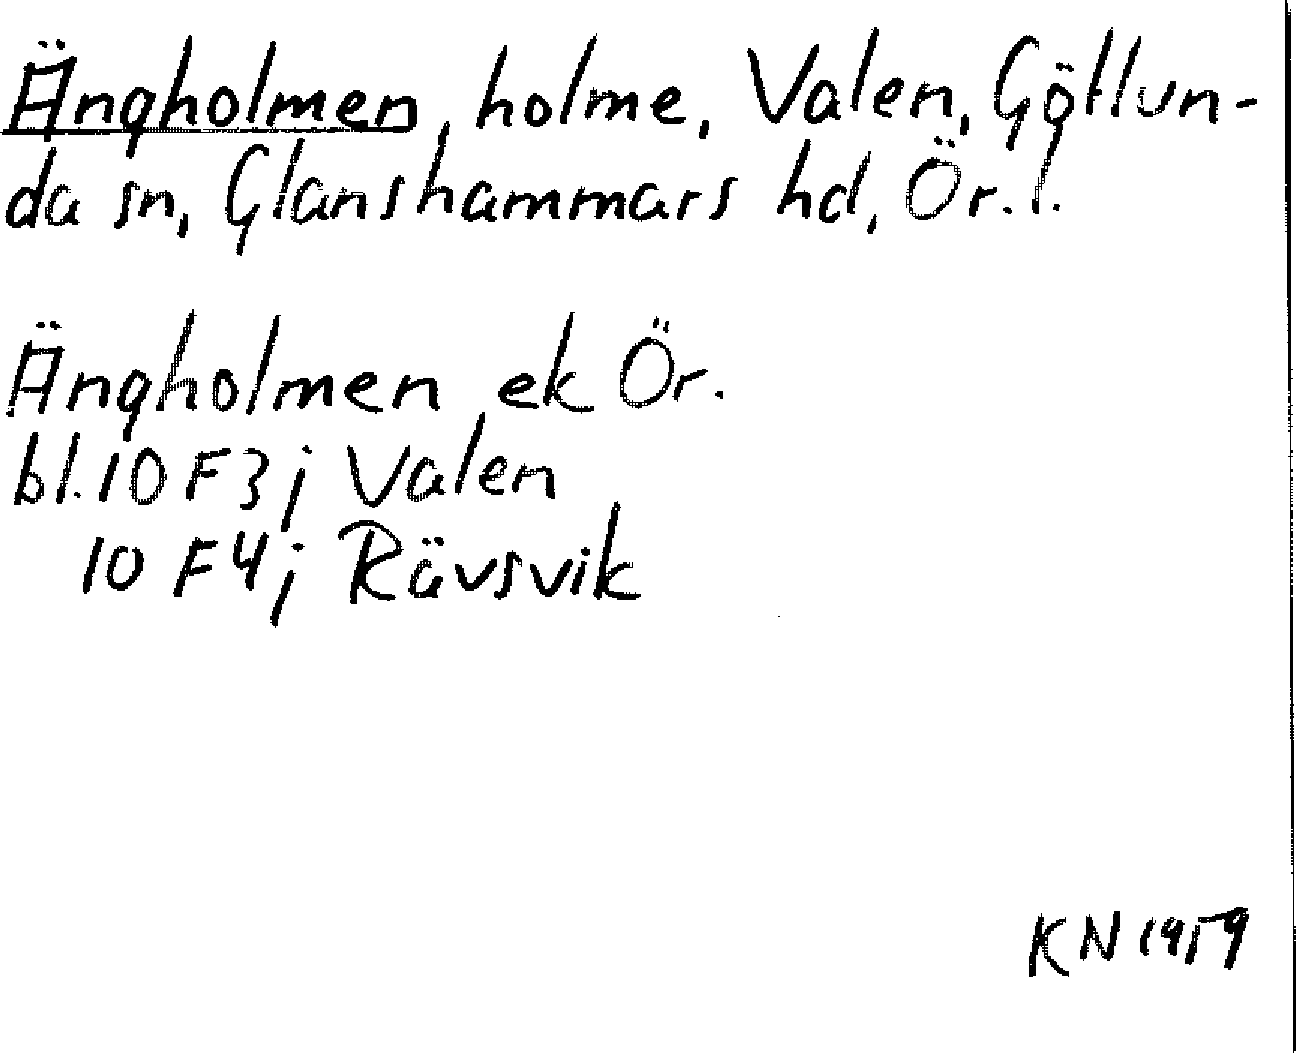 Ängholmen, holme, Valen, Götlun-
da sn, Glanshammars hd, Ör. l.
Ängholmen ek Ör.
bl. 10 F 3 j Valen
10 F 4 j Rävsvik
KN 1959